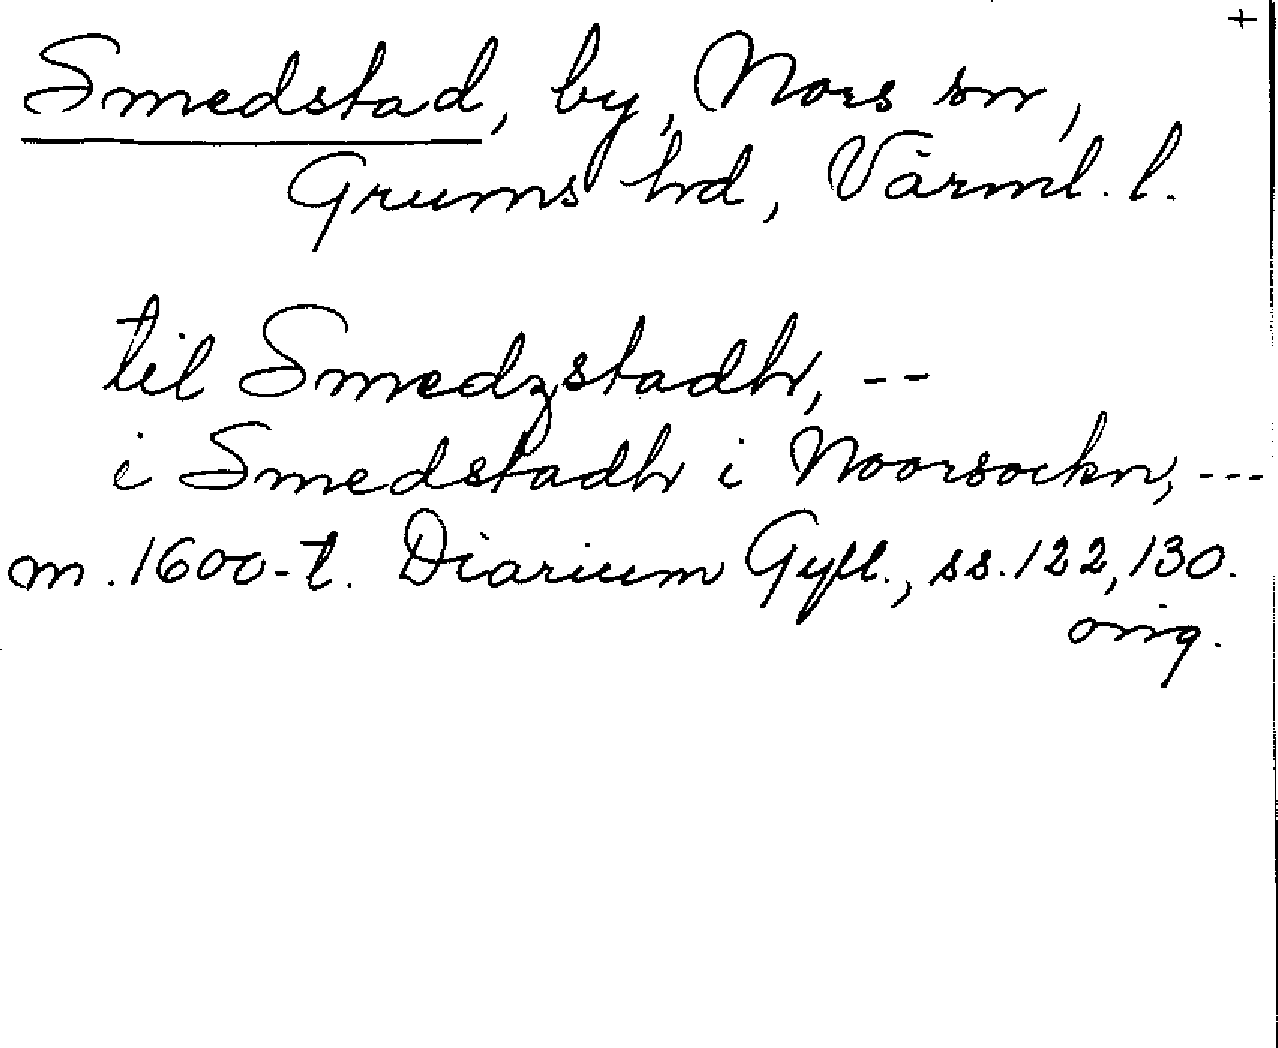 +
Smedstad, by, Nors sn,
Grums hd, Värml. l.
til Smedzstadh, --
i Smedstadh i Noorsockn, ---
m. 1600-t. Diarium Gyll., ss. 122, 130.
orig.